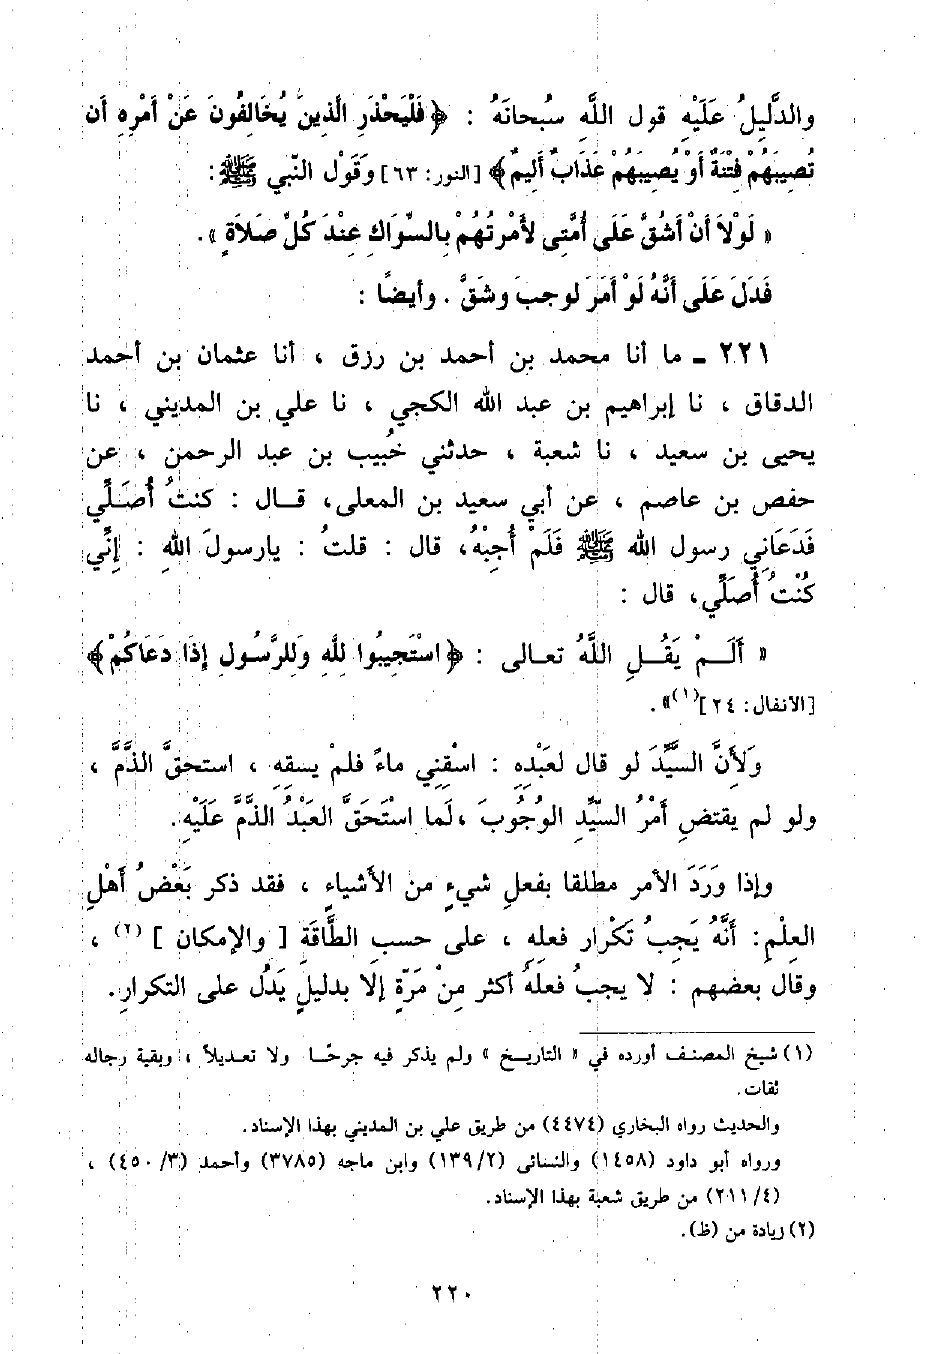 والدَّلِيلُ عَلَيْهِ قول اللَّه سبُحانَهُ : ﴿فَلْيَحْذَرِ الَّذِينَ يُخَالِفُونَ عَنْ أَمْرِهِ أَن
تُصِيبَهُمْ فِتْنَةٌ أَوْ يُصِيبَهُمْ عَذَابٌ أَلِيمٌ﴾ [النور: ٦٣] وَقَوْل النّبي ﷺ:
« لَوْلاَ أَنْ أَشُقَّ عَلَى أُمَّتِى لأَمَرْتُهُمْ بِالسِّوَاكِ عِنْدَ كُلِّ صَلاَةٍ ».
فَدَلَ عَلَى أَنَّهُ لَوْ أَمَرَ لوجبَ وشَقَّ . وأيضًا :
٢٢١ ـ ما أنا محمد بن أحمد بن رزق ، أنا عثمان بن أحمد
الدقاق ، نا إبراهيم بن عبد الله الكجي ، نا علي بن المديني ، نا
يحيى بن سعيد ، نا شعبة ، حدثني خُبيب بن عبد الرحمن ، عن
حفص بن عاصم ، عن أبي سعيد بن المعلى، قـال : كنتُ أُصَلِّي
فَدَعَاني رسول الله ﷺ فَلَمْ أُجِبْهُ، قال : قلتُ : يارسولَ اللهِ : إنِّي
كُنْتُ أُصَلِّي، قال :
« أَلَـمْ يَقُـلِ اللَّهُ تعـالى : ﴿اسْتَجِيبُوا للهِ وَللرَّسُولِ إذَا دَعَاكُمْ﴾
[الانفال: ٢٤](١)» .
وَلأَنَّ السيِّدَ لو قال لعَبْدِهِ : اسْقِنِي ماءً فلمْ يسقِهِ ، استحقَّ الذَّمَّ ،
ولو لم يقتضِ أَمْرُ السيِّدِ الوُجُوبَ ،لَما اسْتَحَقَّ العَبْدُ الذَّمَّ عَلَيْهِ.
وإذا وَرَدَ الأمر مطلقا بفعلِ شيءٍ من الأشياءِ ، فقد ذكر بَعْضُ أَهْلِ
العِلْمِ: أَنَّهُ يَجِبُ تَكْرُار فعلِهِ ، على حسبِ الطَّاقَةِ [ والإمكان ] (٢) ،
وقال بعضهم : لا يجبُ فعلهُ أكثر مِنْ مَرّةٍ إلا بدليلٍ يَدُل على التكرارِ.
(١) شيخ المصنف أورده في « التاريخ » ولم يذكر فيه جرحًا ولا تعديلاً ، وبقية رجاله
ثقات.
والحديث رواه البخاري (٤٤٧٤) من طريق علي بن المديني بهذا الإسناد.
ورواه أبو داود (١٤٥٨) والنسائى (١٣٩/٢) وابن ماجه (٣٧٨٥) وأحمد (٤٥٠/٣) ،
(٢١١/٤) من طريق شعبة بهذا الإسناد.
(٢) زيادة من (ظ).
٢٢٠